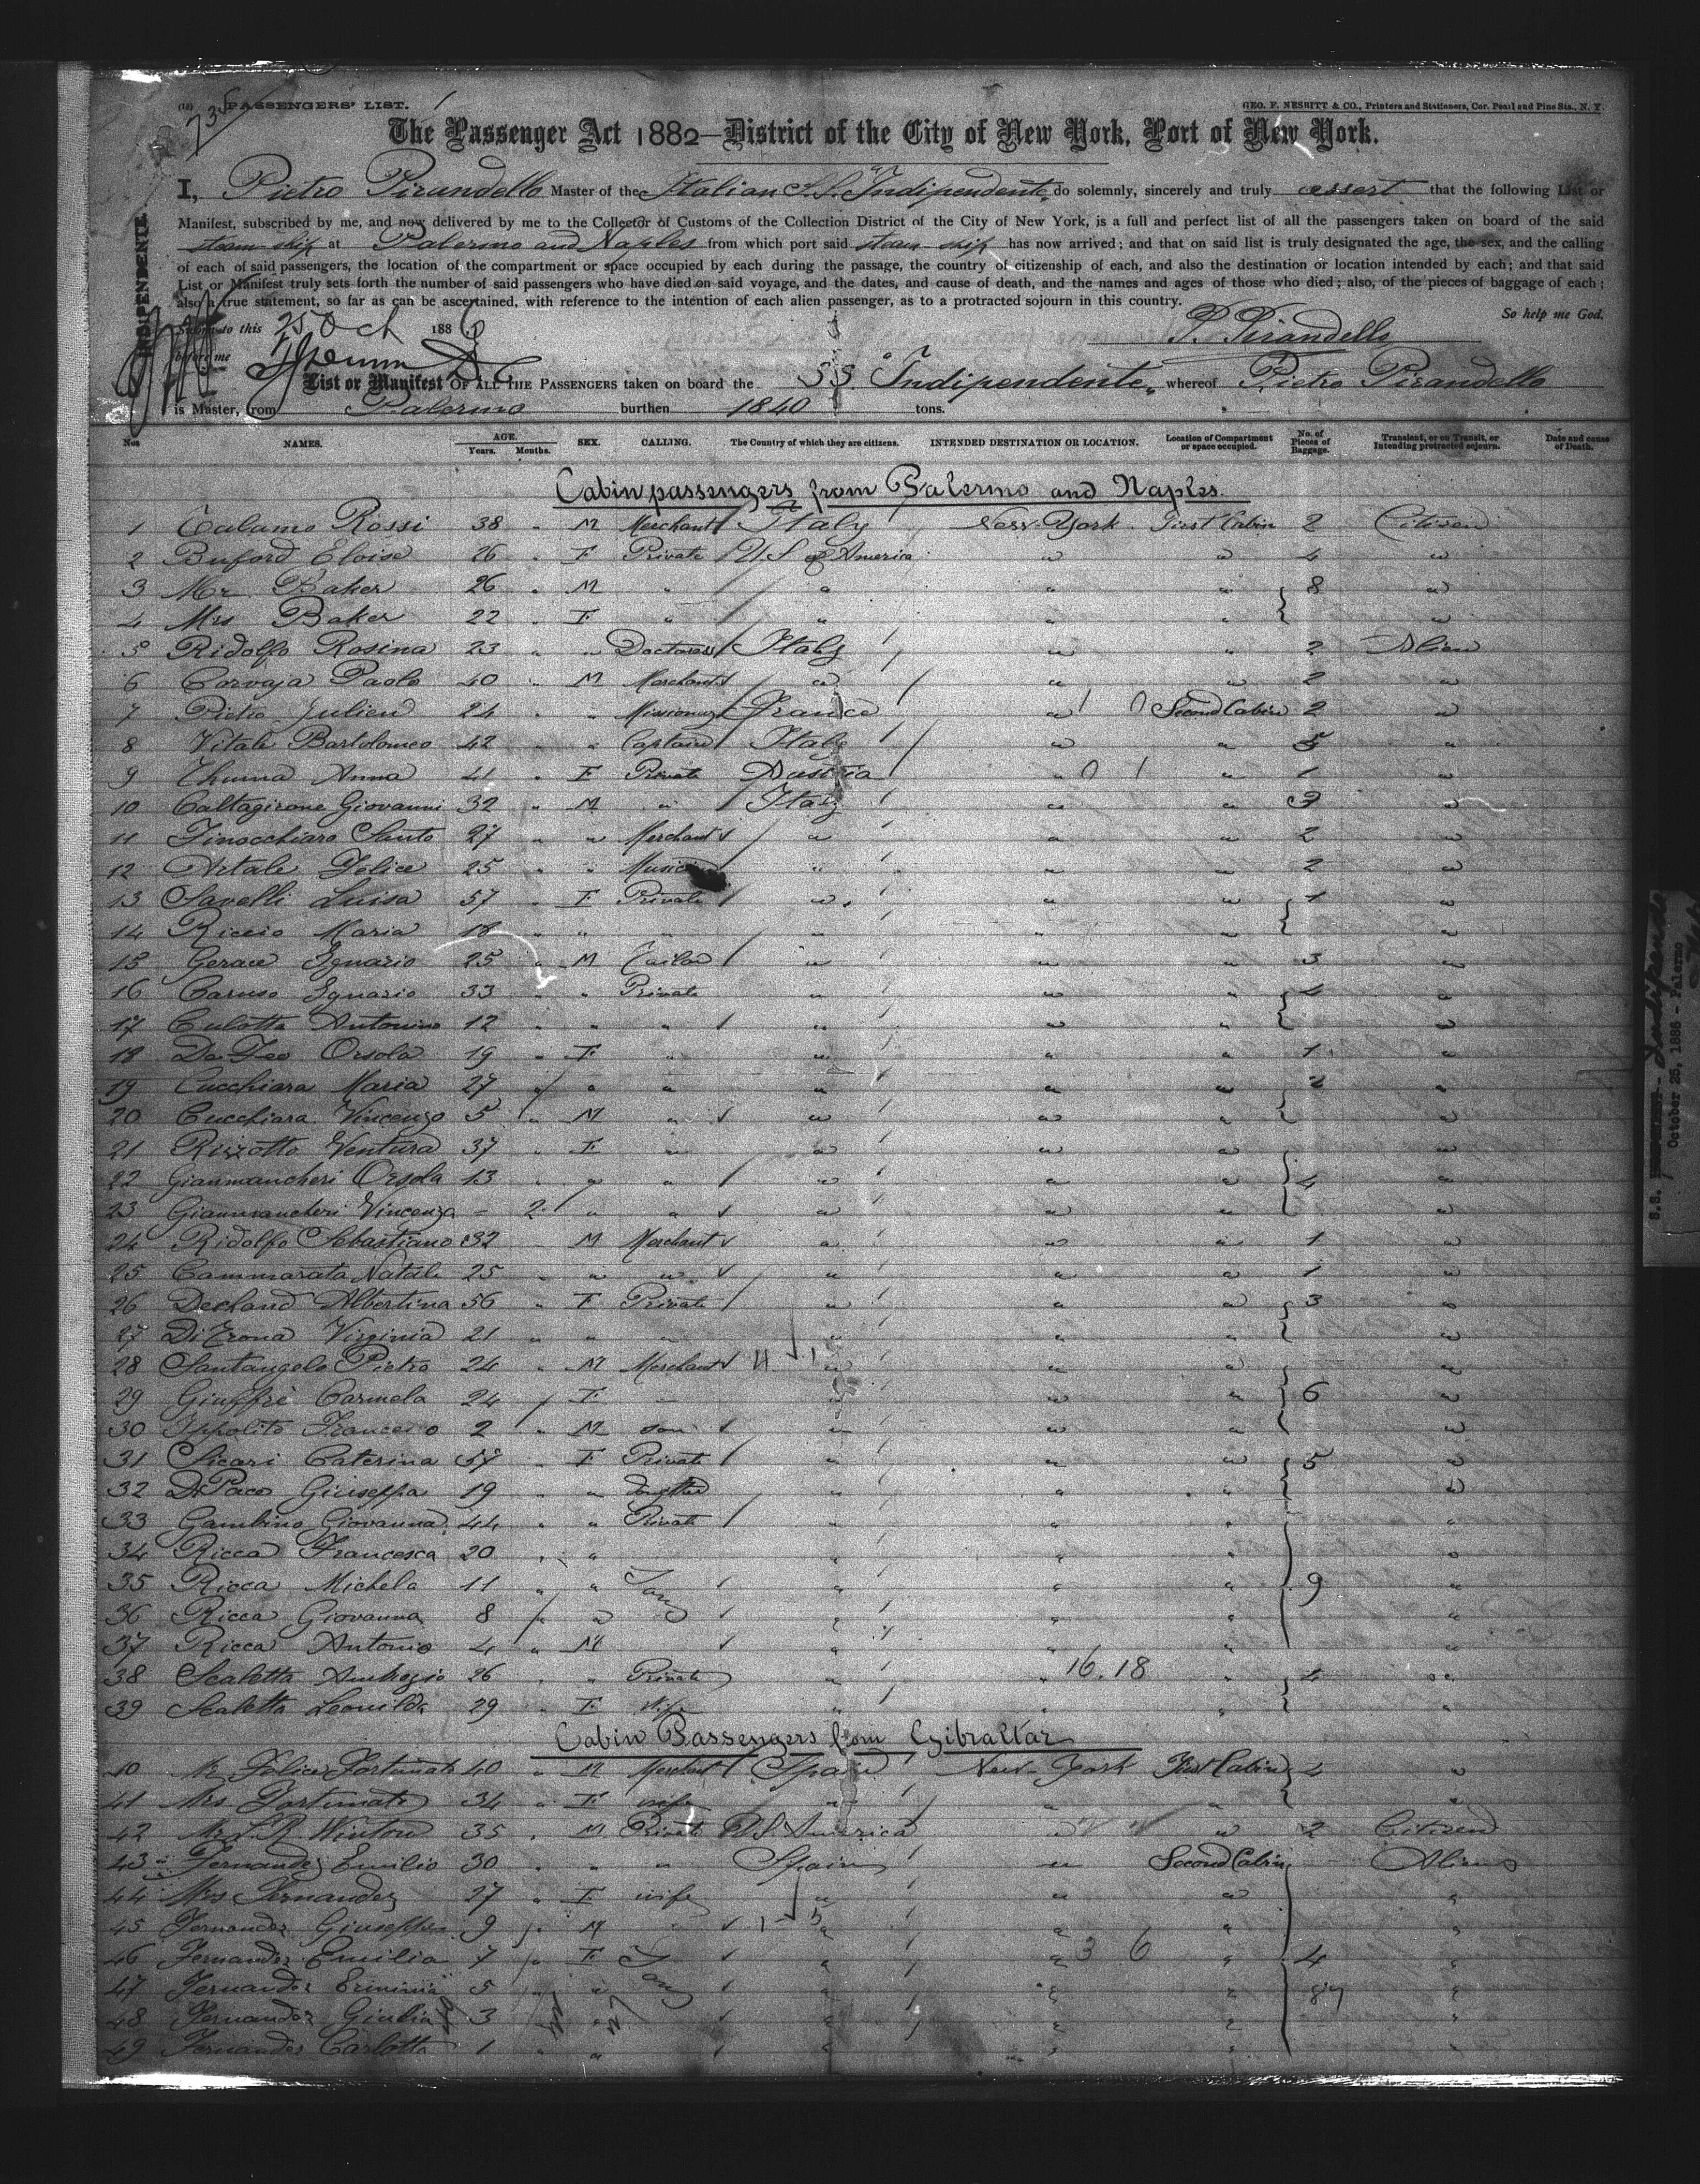 (12) PASSENGERS' LIST. 1
GEO. F. NESBITT & CO., Printers and Stationers, Cor. Pearl and Pine Sts., N. Y.
The Passenger Act 1882—District of the City of New York, Port of New York.
I, Pietro Pirandello Master of the Italian S.S. "Indipendente" do solemnly, sincerely and truly assert that the following List or
Manifest, subscribed by me, and now delivered by me to the Collector of Customs of the Collection District of the City of New York, is a full and perfect list of all the passengers taken on board of the said
steam-ship at Palermo and Naples from which port said steam-ship has now arrived; and that on said list is truly designated the age, the sex, and the calling
of each of said passengers, the location of the compartment or space occupied by each during the passage, the country of citizenship of each, and also the destination or location intended by each; and that said
List or Manifest truly sets forth the number of said passengers who have died on said voyage, and the dates, and cause of death, and the names and ages of those who died; also, of the pieces of baggage of each;
also a true statement, so far as can be ascertained, with reference to the intention of each alien passenger, as to a protracted sojourn in this country.
So help me God.
Sworn to this 25 Oct 1886
P. Pirandello
before me
List or Manifest OF ALL THE PASSENGERS taken on board the SS. "Indipendente" whereof Pietro Pirandello
is Master, from Palermo burthen 1840 tons.
INDIPENDENTE
Nos NAMES. AGE. Years. Months. SEX. CALLING. The Country of which they are citizens. INTENDED DESTINATION OR LOCATION. Location of Compartment or space occupied. No. of Pieces of Baggage. Transient, or on Transit, or Intending protracted sojourn. Date and cause of Death.
Cabin passengers from Palermo and Naples.
1 Calamo Rossi 38 " M Merchant Italy New-York First Cabin 2 Citizen
2 Buford Eloise 26 " F Private U.S of America " " 4 "
3 Mr. Baker 26 " M " " " " 8 "
4 Mrs Baker 22 " F " " " " "
5 Ridolfo Rosina 23 " " Doctoress Italy " " 2 Alien
6 Carvaja Paolo 40 " M Merchant " " " 2 "
7 Pietro Julien 24 " " Missionary France " Second Cabin 2 "
8 Vitale Bartolomeo 42 " " Captain Italy " " 5 "
9 Thuma Anna 41 " F Private Austria " " 1 "
10 Caltagirone Giovanni 32 " M " Italy " " "
11 Finocchiaro Santo 27 " " Merchant " " " 2 "
12 Artale Felice 25 " " " " " 2 "
13 Savelli Luisa 57 " F Private " " " 1 "
14 Riccio Maria 18 " " " " " " "
15 Gerace Ignazio 25 " M Tailor " " " 3 "
16 Caruso Ignazio 33 " " Private " " " 4 "
17 Culotta Antonino 12 " " " " " " "
18 De Feo Orsola 19 " F " " " " 1 "
19 Cucchiara Maria 27 " " " " " " 2 "
20 Cucchiara Vincenzo 5 " M " " " " "
21 Rizzotto Ventura 37 " F " " " " "
22 Gianmancheri Orsola 13 " " " " " " 4 "
23 Gianmancheri Vincenza - 2 " " " " " "
24 Ridolfo Sebastiano 32 M Merchant " " " 1 "
25 Cammarata Natale 25 " " " " " " 1 "
26 Dechand Albertina 56 " F Private " " " 3 "
27 Virginia 21 " " " " " " "
28 Santangelo Pietro 24 " M Merchant " " " "
29 Giuffrè Carmela 24 F - " " " 6 "
30 Ippolito Francesco 2 " M son " " " "
31 Sicari Caterina 57 " F Private " " " 5 "
32 Giuseppa 19 " " " " " "
33 Gambino Giovanna 44 " " Private " " " "
34 Ricca Francesca 20 " " " " " "
35 Ricca Michela 11 " " " " " 9 "
36 Ricca Giovanna 8 " " " " " "
37 Ricca Antonio 4 " M " " " "
38 Scaletta Ambrogio 26 " " Private " " 16.18 " 4 "
39 Scaletta Leonilda 29 " F Wife " " " "
Cabin Passengers from Gibraltar
40 Mr Felice Fortunato 40 " M Merchant Spain New-York First Cabin 4 "
41 Mrs Fortunato 34 " F wife " " " "
42 Mr L.R. Winton 35 " M Private U.S. America " " 2 Citizen
43 Fernandez Emilio 30 " " " Spain " Second Cabin Aliens
44 Mrs Fernandez 27 " F wife " " " "
45 Fernandez Giuseppe 9 M " " " " "
46 Fernandez Emilia 7 F " " 3 6 " 4 "
47 Fernandez 5 " " " " 87 "
48 Fernandez Giulia 3 " " " " "
49 Fernandez Carlotta 1 " " " " " "
S.S. Indipendente
October 25, 1886 - Palermo